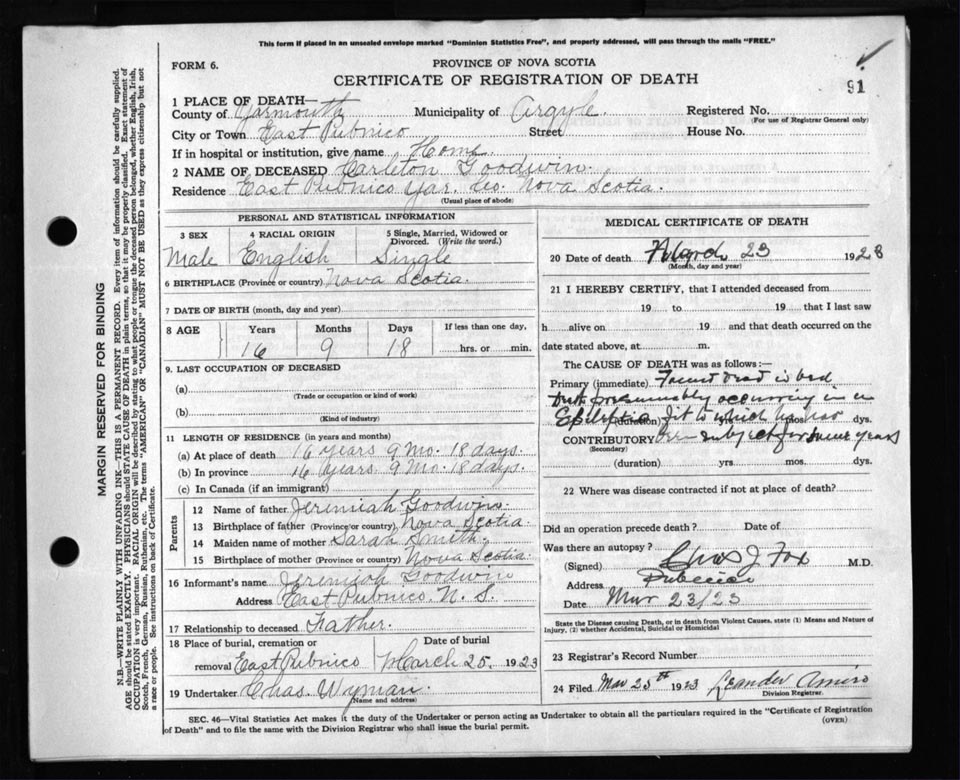 This form if placed in an unsealed envelope marked "Dominion Statistics Free", and properly addressed, will pass through the mails "FREE."
FORM 6.
PROVINCE OF NOVA SCOTIA
CERTIFICATE OF REGISTRATION OF DEATH
91
1 PLACE OF DEATH—
County of Yarmouth Municipality of Argyle. Registered No.
(For use of Registrar General only)
City or Town East Pubnico Street House No.
If in hospital or institution, give name Home.
2 NAME OF DECEASED Carleton Goodwin.
Residence East Pubnico Yar. Co. Nova Scotia.
(Usual place of abode)
PERSONAL AND STATISTICAL INFORMATION
3 SEX 4 RACIAL ORIGIN 5 Single, Married, Widowed or Divorced. (Write the word.)
Male English Single
6 BIRTHPLACE (Province or country) Nova Scotia.
7 DATE OF BIRTH (month, day and year)
8 AGE Years Months Days If less than one day,
16 9 18 hrs. or min.
9. LAST OCCUPATION OF DECEASED
(a)
(Trade or occupation or kind of work)
(b)
(Kind of industry)
11 LENGTH OF RESIDENCE (in years and months)
(a) At place of death 16 years 9 Mo. 18 days.
(b) In province 16 years. 9 Mo. 18 days.
(c) In Canada (if an immigrant)
Parents
12 Name of father Jeremiah Goodwin.
13 Birthplace of father (Province or country) Nova Scotia.
14 Maiden name of mother Sarah Smith.
15 Birthplace of mother (Province or country) Nova Scotia.
16 Informant's name Jeremiah Goodwin
Address East Pubnico. N. S.
17 Relationship to deceased Father.
18 Place of burial, cremation or removal East Pubnico Date of burial March 25. 1923
19 Undertaker Chas. Wyman.
(Name and address)
MEDICAL CERTIFICATE OF DEATH
20 Date of death March 23 1923
(Month, day and year)
21 I HEREBY CERTIFY, that I attended deceased from
19 to 19 that I last saw
h alive on 19 and that death occurred on the
date stated above, at m.
The CAUSE OF DEATH was as follows:—
Primary (immediate) Found dead in bed
but presumably occurring in an
Epileptic fit to which he has
(duration) yrs. mos. dys.
CONTRIBUTORY been subject for some years
(Secondary)
(duration) yrs. mos. dys.
22 Where was disease contracted if not at place of death?
Did an operation precede death? Date of
Was there an autopsy?
(Signed) Chas J. Fox M.D.
Address Pubnico
Date Mar 23/23
State the Disease causing Death, or in death from Violent Causes, state (1) Means and Nature of Injury, (2) whether Accidental, Suicidal or Homicidal
23 Registrar's Record Number
24 Filed Mar 25th 1923 Leander Amiro
Division Registrar.
SEC. 46—Vital Statistics Act makes it the duty of the Undertaker or person acting as Undertaker to obtain all the particulars required in the "Certificate of Registration of Death" and to file the same with the Division Registrar who shall issue the burial permit.
(OVER)
MARGIN RESERVED FOR BINDING
N.B.—WRITE PLAINLY WITH UNFADING INK—THIS IS A PERMANENT RECORD. Every item of information should be carefully supplied.
AGE should be stated EXACTLY. PHYSICIANS should STATE CAUSE OF DEATH in plain terms, so that it may be properly classified. Exact statement of
OCCUPATION is very important. RACIAL ORIGIN will be described by stating to what people or tongue the deceased person belonged, whether English, Irish,
Scotch, French, German, Russian, Ruthenian, etc. The terms "AMERICAN" OR "CANADIAN" MUST NOT BE USED as they express citizenship but not
a race or people. See instructions on back of Certificate.